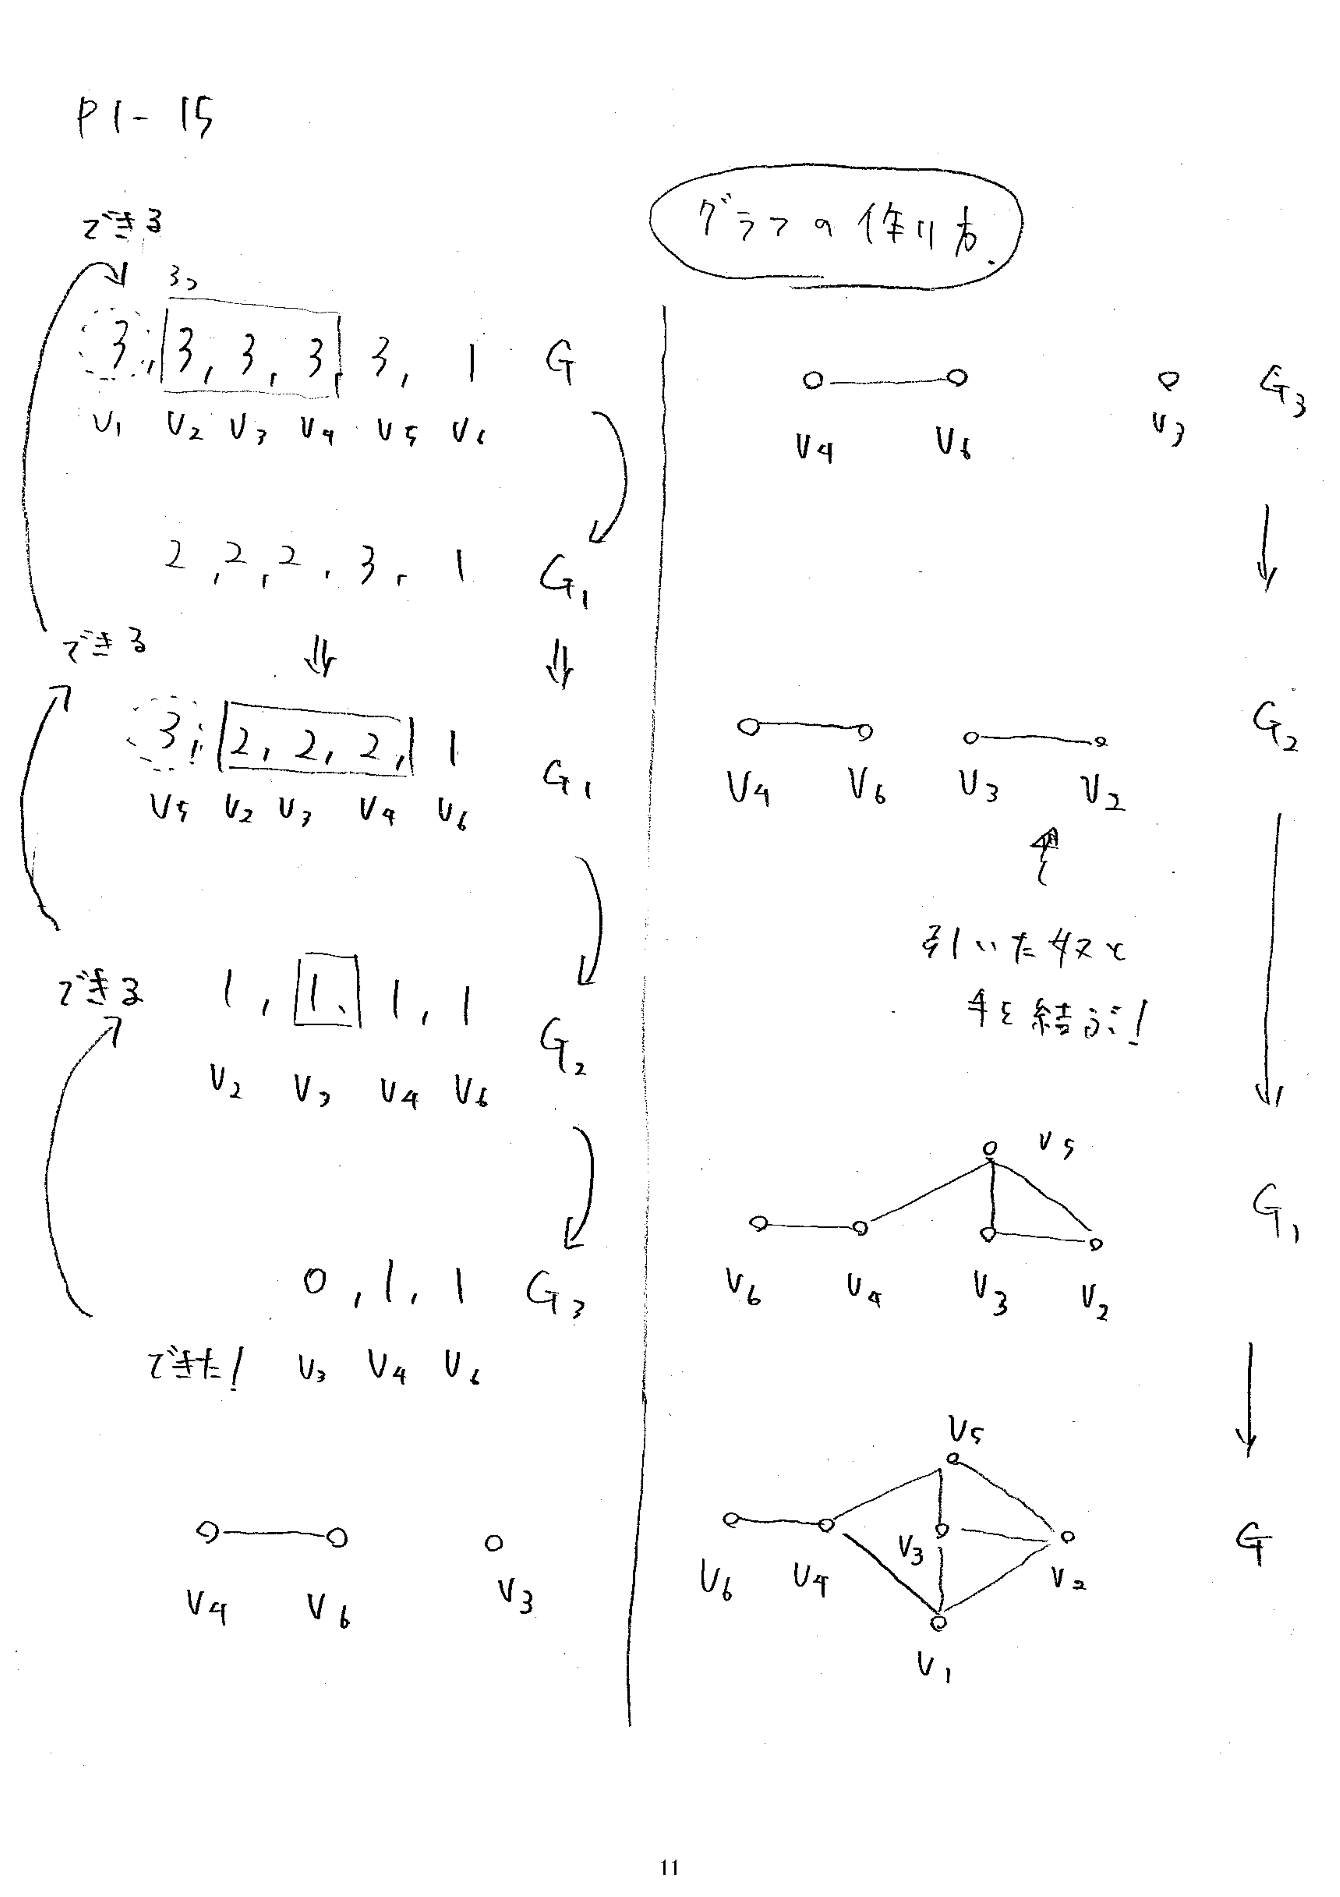 P1-15
できる
3つ
3, 3, 3, 3, 3, 1 G
V1 V2 V3 V4 V5 V6
2, 2, 2, 3, 1 G1
できる
⇓ ⇓
3, 2, 2, 2, 1 G1
V5 V2 V3 V4 V6
できる 1, 1, 1, 1 G2
V2 V3 V4 V6
0, 1, 1 G3
できた! V3 V4 V6
V4 V6 V3
グラフの作り方.
G3
V4 V6 V3
G2
V4 V6 V3 V2
引いたヤツと
手を結ぶ!
V5
G1
V6 V4 V3 V2
V5
G
V6 V4 V3 V2
V1
11